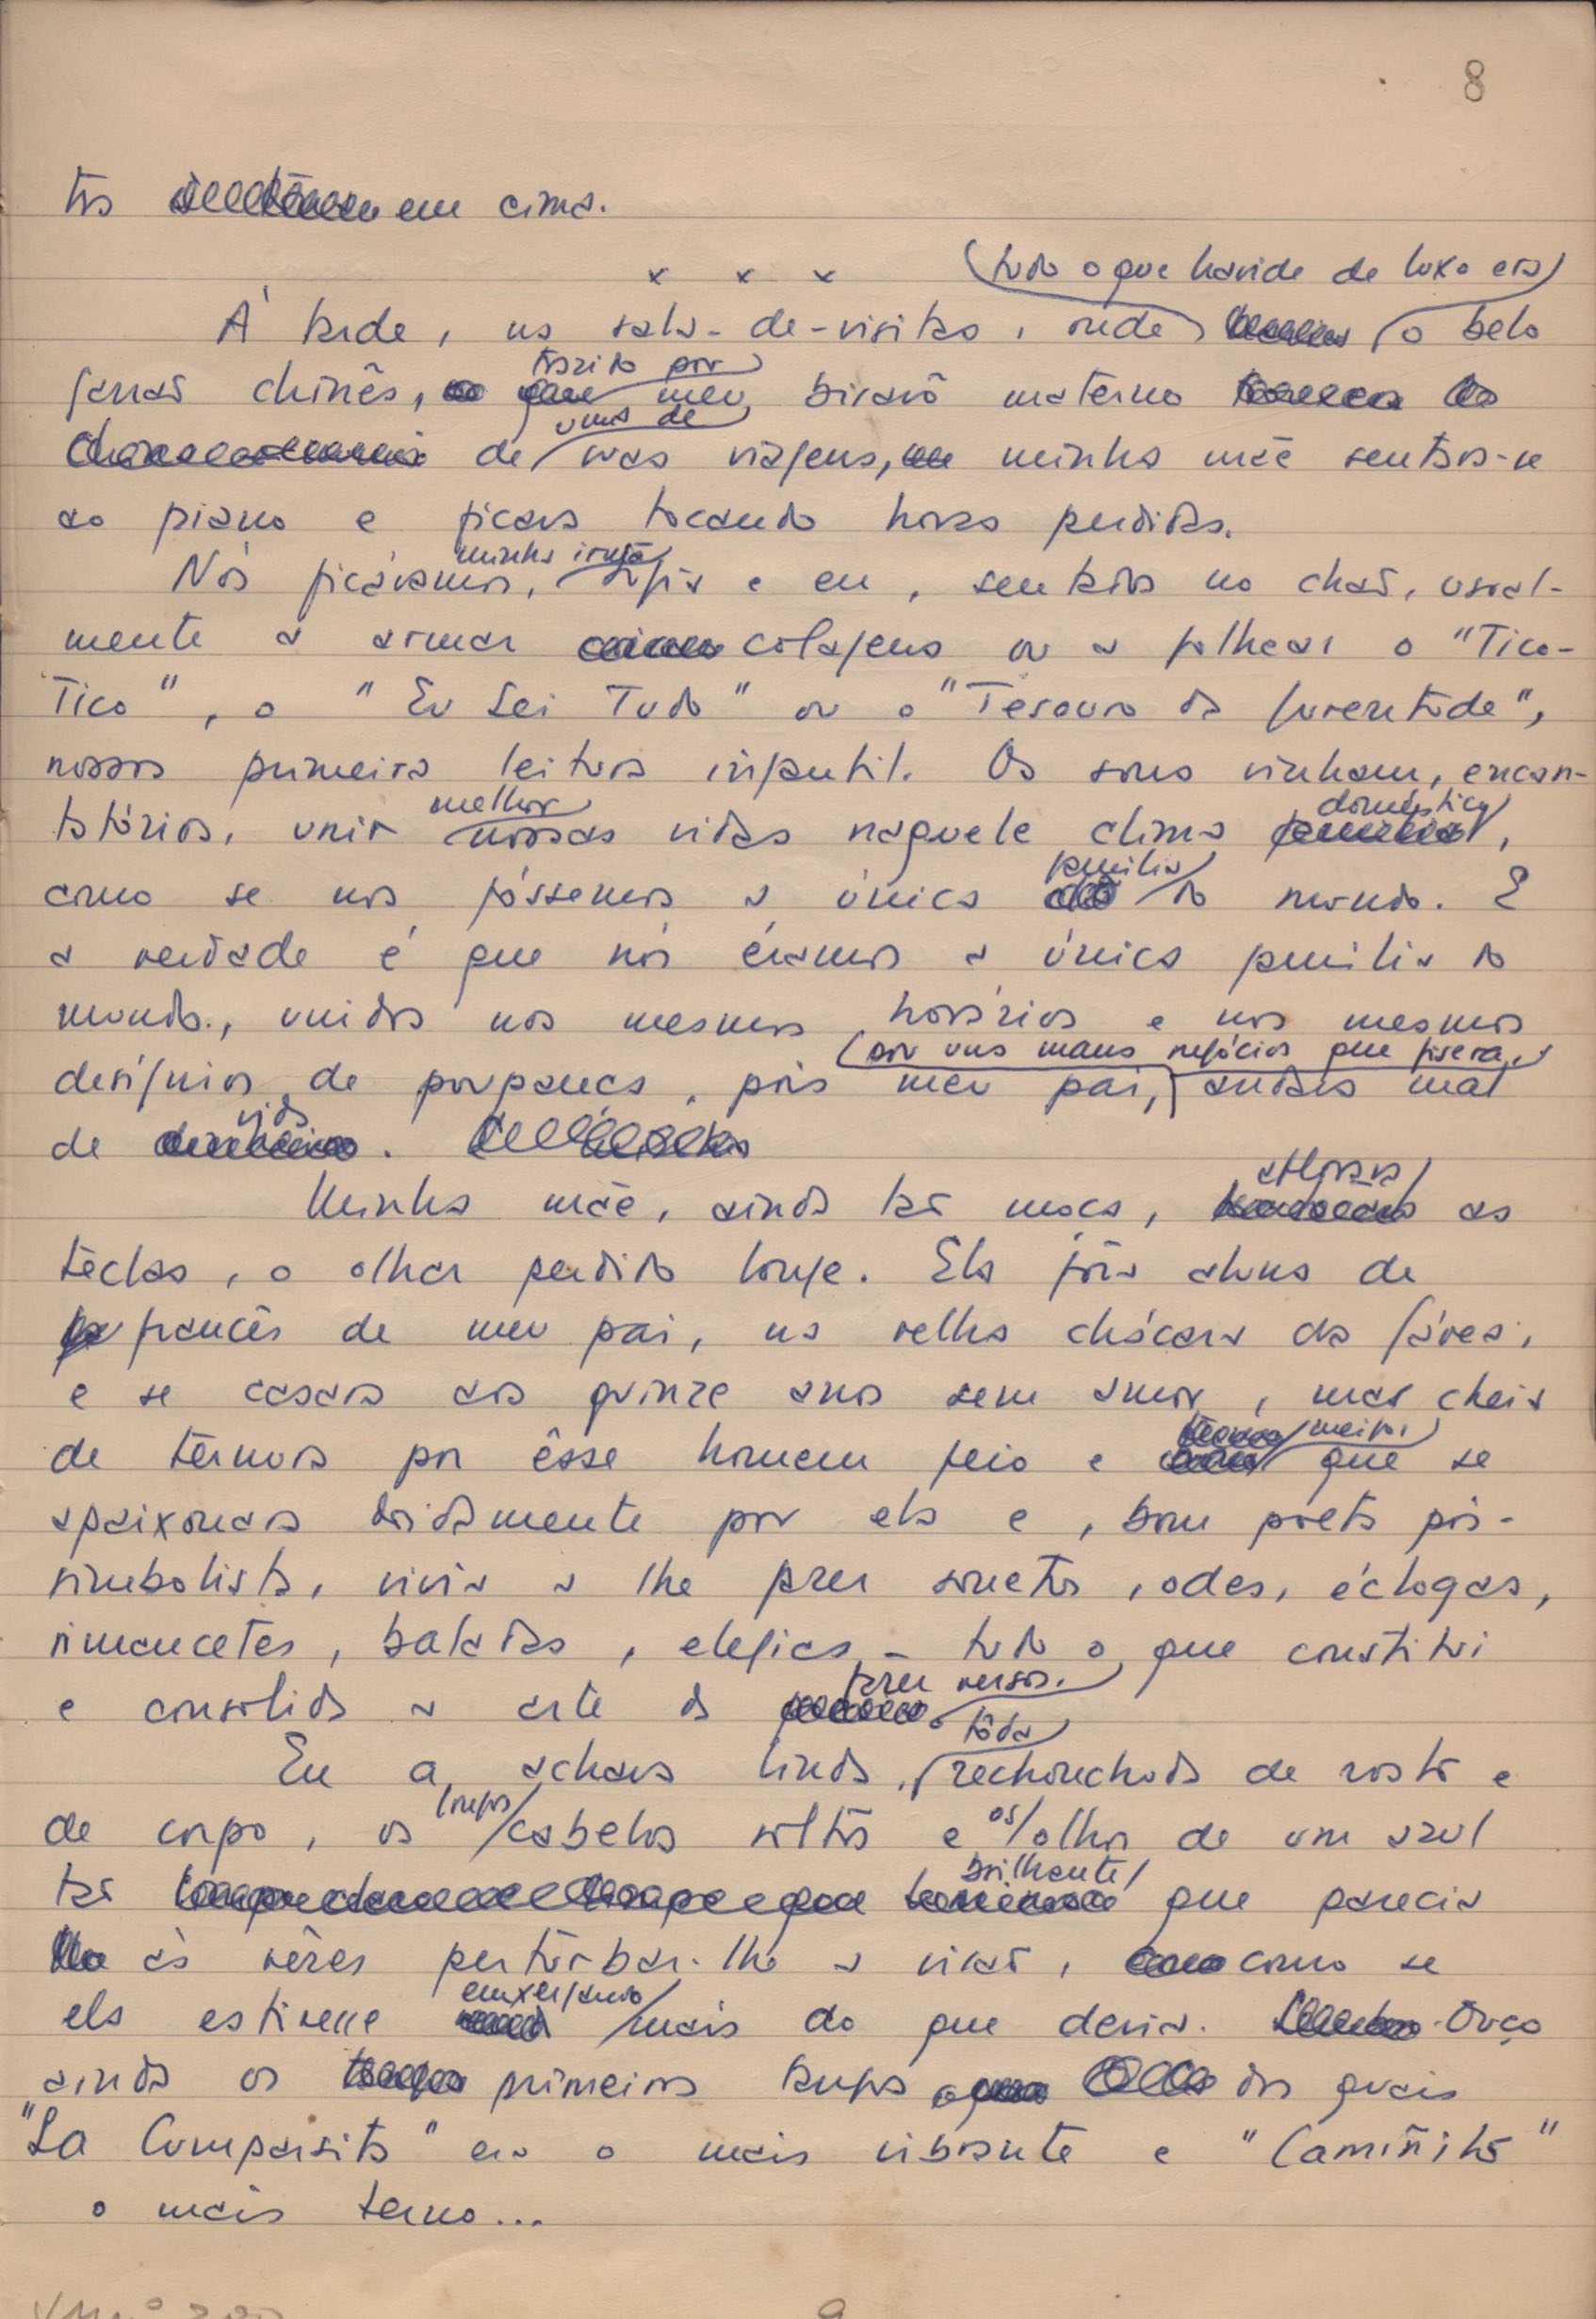 8
tos em cima.
x x x (tudo o que havide de luxo era)
À tarde, na sala-de-visitas, onde o belo
trazido por
jarrão chinês, meu bisavô materno
uma de
de suas viagens, minha mãe sentava-se
ao piano e ficava tocando horas perdidas.
minha irmã
Nós ficávamos, e eu, sentados no chão, usual-
mente a armar colagens ou a folhear o "Tico-
Tico", o "Eu Sei Tudo" ou o "Tesouro da Juventude",
nossa primeira leitura infantil. Os sons vinham, encan-
melhor doméstico
tatórios, unir nossas vidas naquele clima ,
família
como se nós fôssemos a única do mundo. E
a verdade é que nós éramos a única família do
mundo, unidos nos mesmos horários e nos mesmos
(por uns maus negócios que fizera,
desígnios de poupança, pois meu pai, andava mal
vida
de .
aflorava
Minha mãe, ainda tão moça, as
teclas, o olhar perdido longe. Ela fôra aluna de
francês de meu pai, na velha chácara da Gávea,
e se casara aos quinze anos sem amor, mas cheia
meigo,
de ternura por êsse homem feio e que se
apaixonara doidamente por ela e, bom poeta pós-
simbolista, vivia a lhe fazer sonetos, odes, éclogas,
rimancetes, baladas, elegias - tudo o que constitui
fazer versos.
e consolida a arte de
tôda
Eu a achava linda, rechonchuda de rosto e
longos os
de corpo, os cabelos soltos e olhos de um azul
brilhante
tão que parecia
às vêzes perturbar-lhe a visão, como se
enxergando
ela estivesse mais do que devia. Ouço
ainda os primeiros tangos dos quais
"La Cumparsita" era o mais vibrante e "Camiñito"
o mais terno...
9